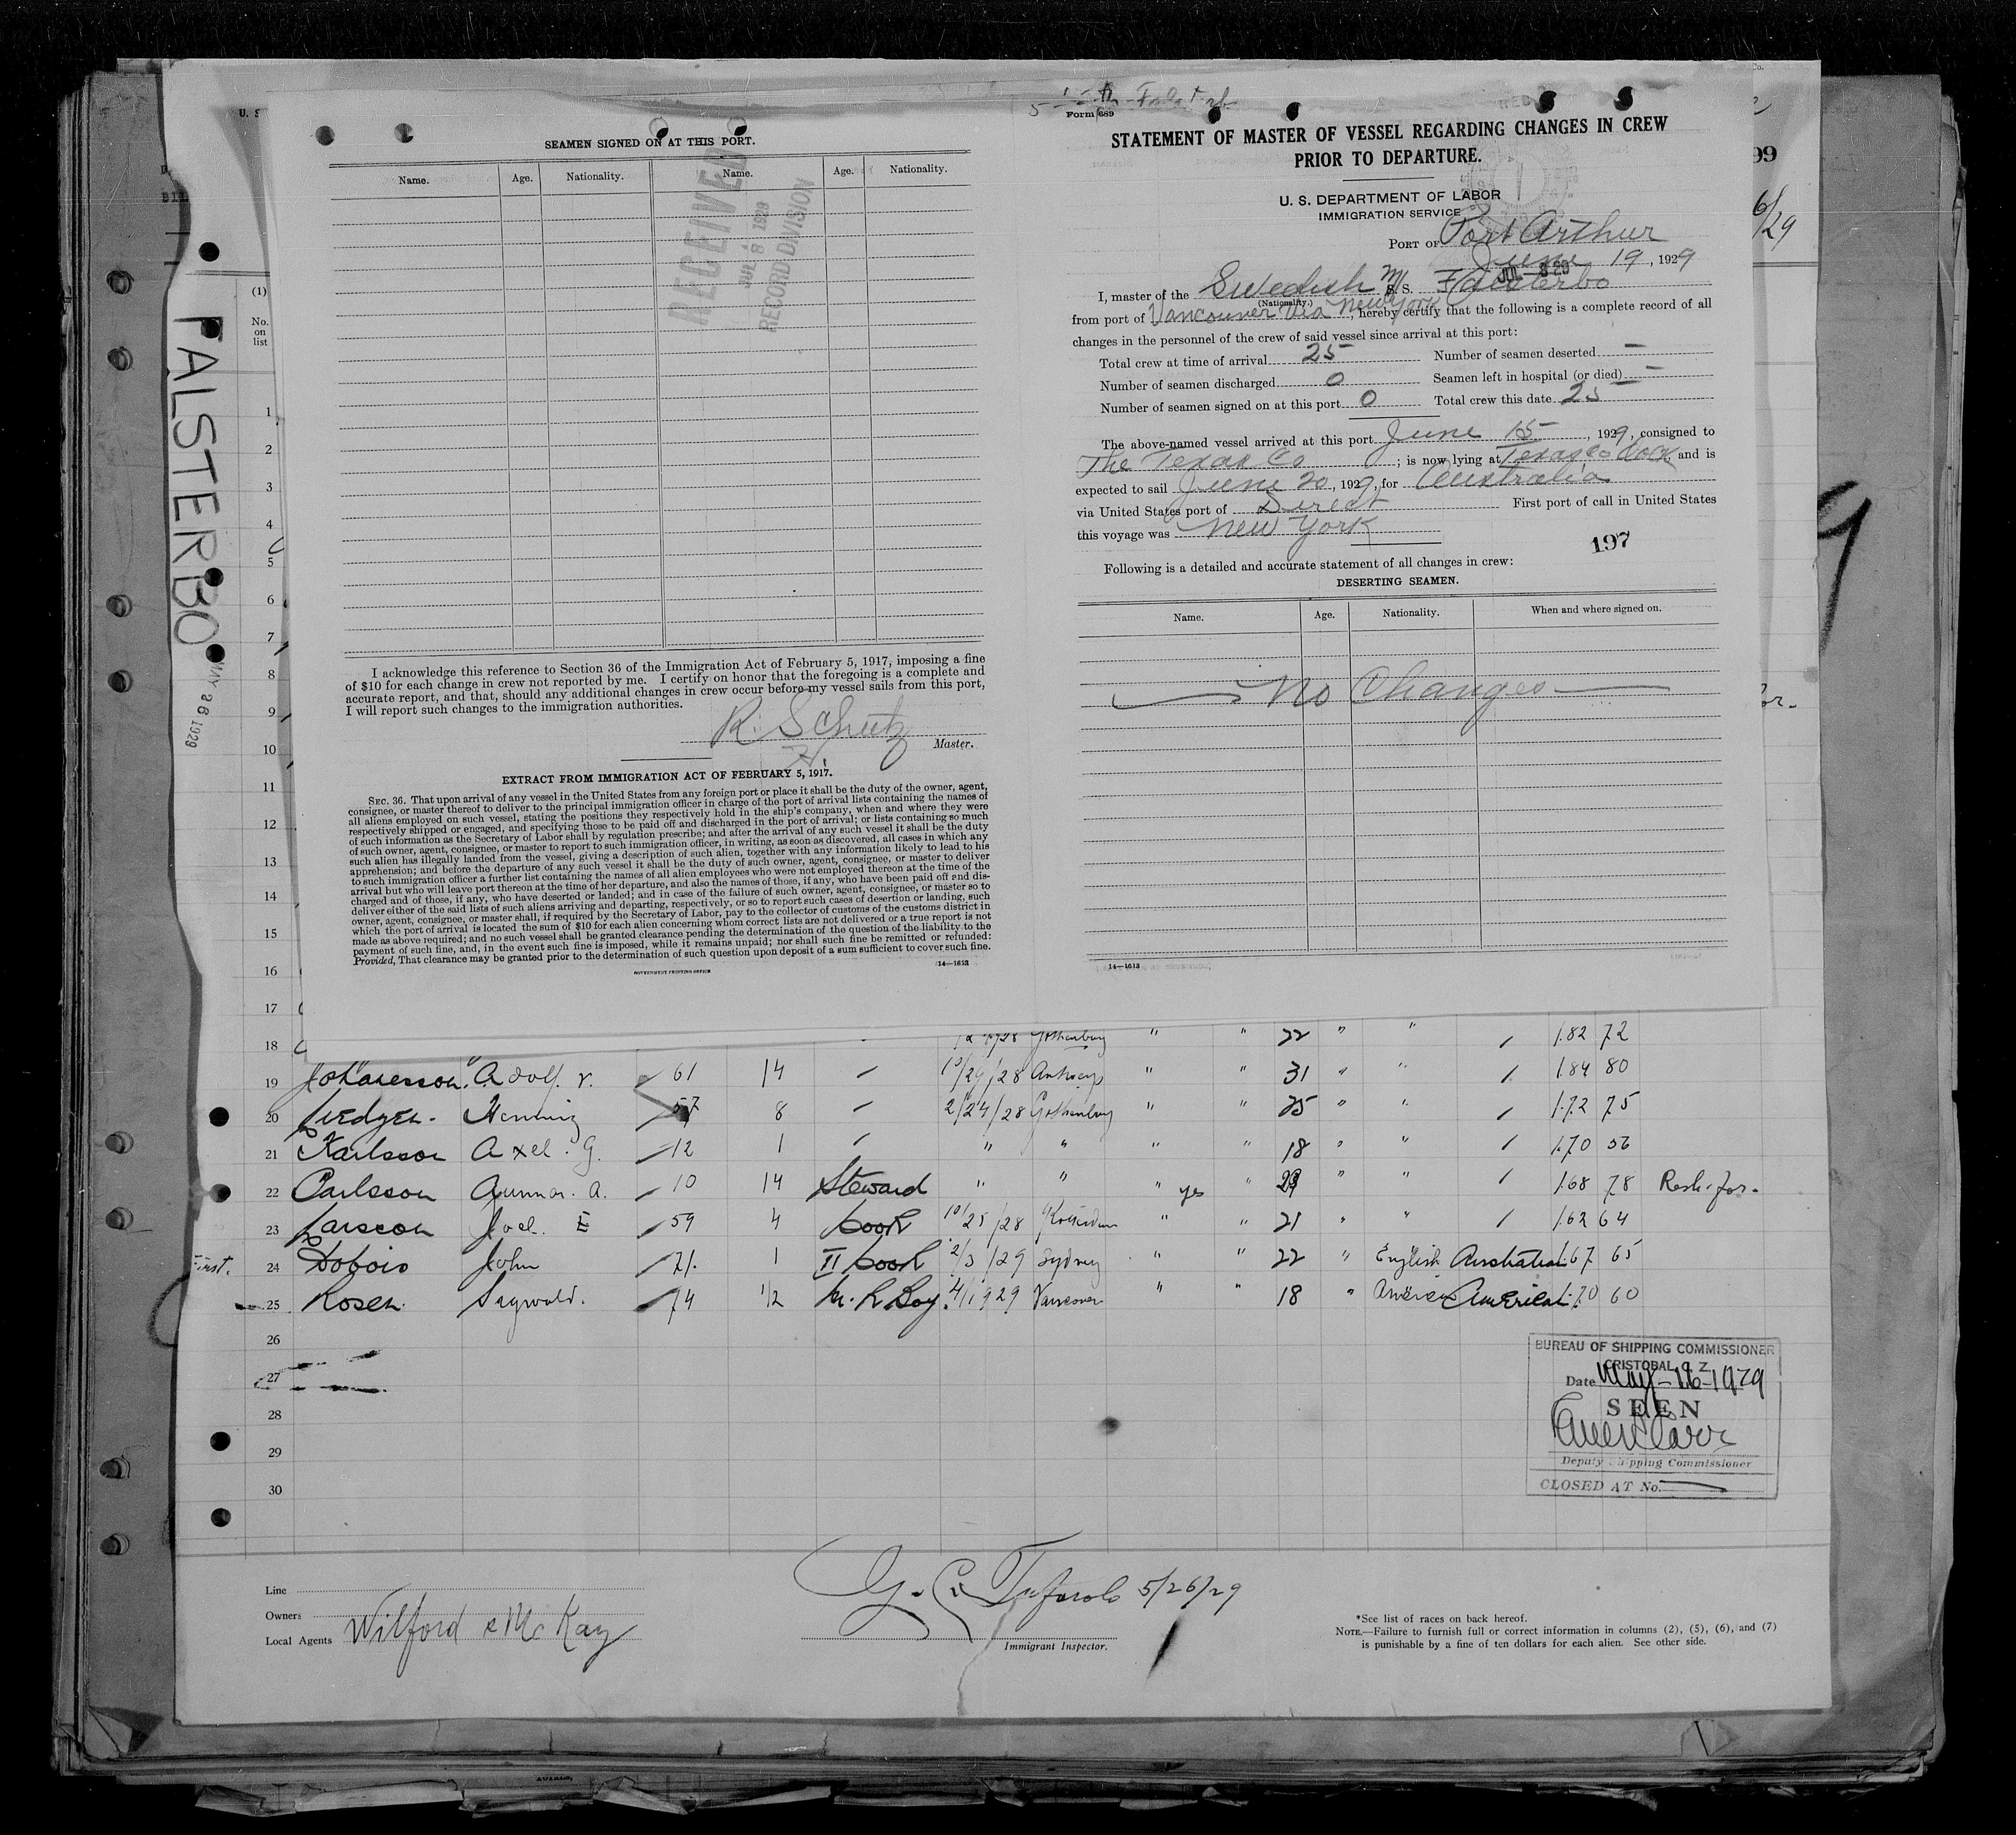 SEAMEN SIGNED ON AT THIS PORT.
Name. Age. Nationality. Name. Age. Nationality.
RECEIVED
JUL 8 1929
RECORD DIVISION
I acknowledge this reference to Section 36 of the Immigration Act of February 5, 1917, imposing a fine
of $10 for each change in crew not reported by me. I certify on honor that the foregoing is a complete and
accurate report, and that, should any additional changes in crew occur before my vessel sails from this port,
I will report such changes to the immigration authorities.
R. Schutz
Master.
EXTRACT FROM IMMIGRATION ACT OF FEBRUARY 5, 1917.
SEC. 36. That upon arrival of any vessel in the United States from any foreign port or place it shall be the duty of the owner, agent,
consignee, or master thereof to deliver to the principal immigration officer in charge of the port of arrival lists containing the names of
all aliens employed on such vessel, stating the positions they respectively hold in the ship's company, when and where they were
respectively shipped or engaged, and specifying those to be paid off and discharged in the port of arrival; or lists containing so much
of such information as the Secretary of Labor shall by regulation prescribe; and after the arrival of any such vessel it shall be the duty
of such owner, agent, consignee, or master to report to such immigration officer, in writing, as soon as discovered, all cases in which any
such alien has illegally landed from the vessel, giving a description of such alien, together with any information likely to lead to his
apprehension; and before the departure of any such vessel it shall be the duty of such owner, agent, consignee, or master to deliver
to such immigration officer a further list containing the names of all alien employees who were not employed thereon at the time of the
arrival but who will leave port thereon at the time of her departure, and also the names of those, if any, who have been paid off and dis-
charged and of those, if any, who have deserted or landed; and in case of the failure of such owner, agent, consignee, or master so to
deliver either of the said lists of such aliens arriving and departing, respectively, or so to report such cases of desertion or landing, such
owner, agent, consignee, or master shall, if required by the Secretary of Labor, pay to the collector of customs of the customs district in
which the port of arrival is located the sum of $10 for each alien concerning whom correct lists are not delivered or a true report is not
made as above required; and no such vessel shall be granted clearance pending the determination of the question of the liability to the
payment of such fine, and, in the event such fine is imposed, while it remains unpaid; nor shall such fine be remitted or refunded:
Provided, That clearance may be granted prior to the determination of such question upon deposit of a sum sufficient to cover such fine.
GOVERNMENT PRINTING OFFICE 14—1613
Form 689
STATEMENT OF MASTER OF VESSEL REGARDING CHANGES IN CREW
PRIOR TO DEPARTURE.
U. S. DEPARTMENT OF LABOR
IMMIGRATION SERVICE
PORT OF Port Arthur
June 19, 1929
I, master of the Swedish M/S. Falsterbo
(Nationality.)
from port of Vancouver via New York, hereby certify that the following is a complete record of all
changes in the personnel of the crew of said vessel since arrival at this port:
Total crew at time of arrival 25 Number of seamen deserted —
Number of seamen discharged 0 Seamen left in hospital (or died) —
Number of seamen signed on at this port 0 Total crew this date 25
The above-named vessel arrived at this port June 15, 1929, consigned to
The Texas Co; is now lying at Texas Co Dock and is
expected to sail June 20, 1929, for Australia
via United States port of Direct First port of call in United States
this voyage was New York
197
Following is a detailed and accurate statement of all changes in crew:
DESERTING SEAMEN.
Name. Age. Nationality. When and where signed on.
No Changes
14—1613
FALSTERBO
MAY 26 1929
U. S
99
6/29
9
(1)
No.
on
list
1
2
3
4
5
6
7
8
9
10
11
12
13
14
15
16
17
18 Gothenburg " " 22 " " 1.82 72
19 Johanesson Adolf. V. 61 14 10/29/28 Antwerp " " 31 " " 1.84 80
20 Henning 57 8 2/24/28 Gothenburg " " 25 " " 1.72 75
21 Karlsson Axel. G. 12 1 " " " " 18 " " 1.70 56
22 Carlsson Gunnar. A. 10 14 Steward " " " yes " 29 " " 1.68 78
23 Larsson Joel. E 59 4 Cook 10/25/28 " " 21 " " 1.62 64
24 John 71. 1 II Cook 2/3/29 Sydney " " 22 " English Australian 1.67 65
25 Rosen. Sigwald. 74 1/2 Boy. 4/1929 Vancouver " " 18 " American American 1.70 60
26
27
28
29
30
BUREAU OF SHIPPING COMMISSIONER
CRISTOBAL, C. Z.
Date May-16-1929
SEEN
Deputy Shipping Commissioner
CLOSED AT No.
Line
Owners
Local Agents Wilford & McKay
5/26/29
Immigrant Inspector.
*See list of races on back hereof.
NOTE.—Failure to furnish full or correct information in columns (2), (5), (6), and (7)
is punishable by a fine of ten dollars for each alien. See other side.